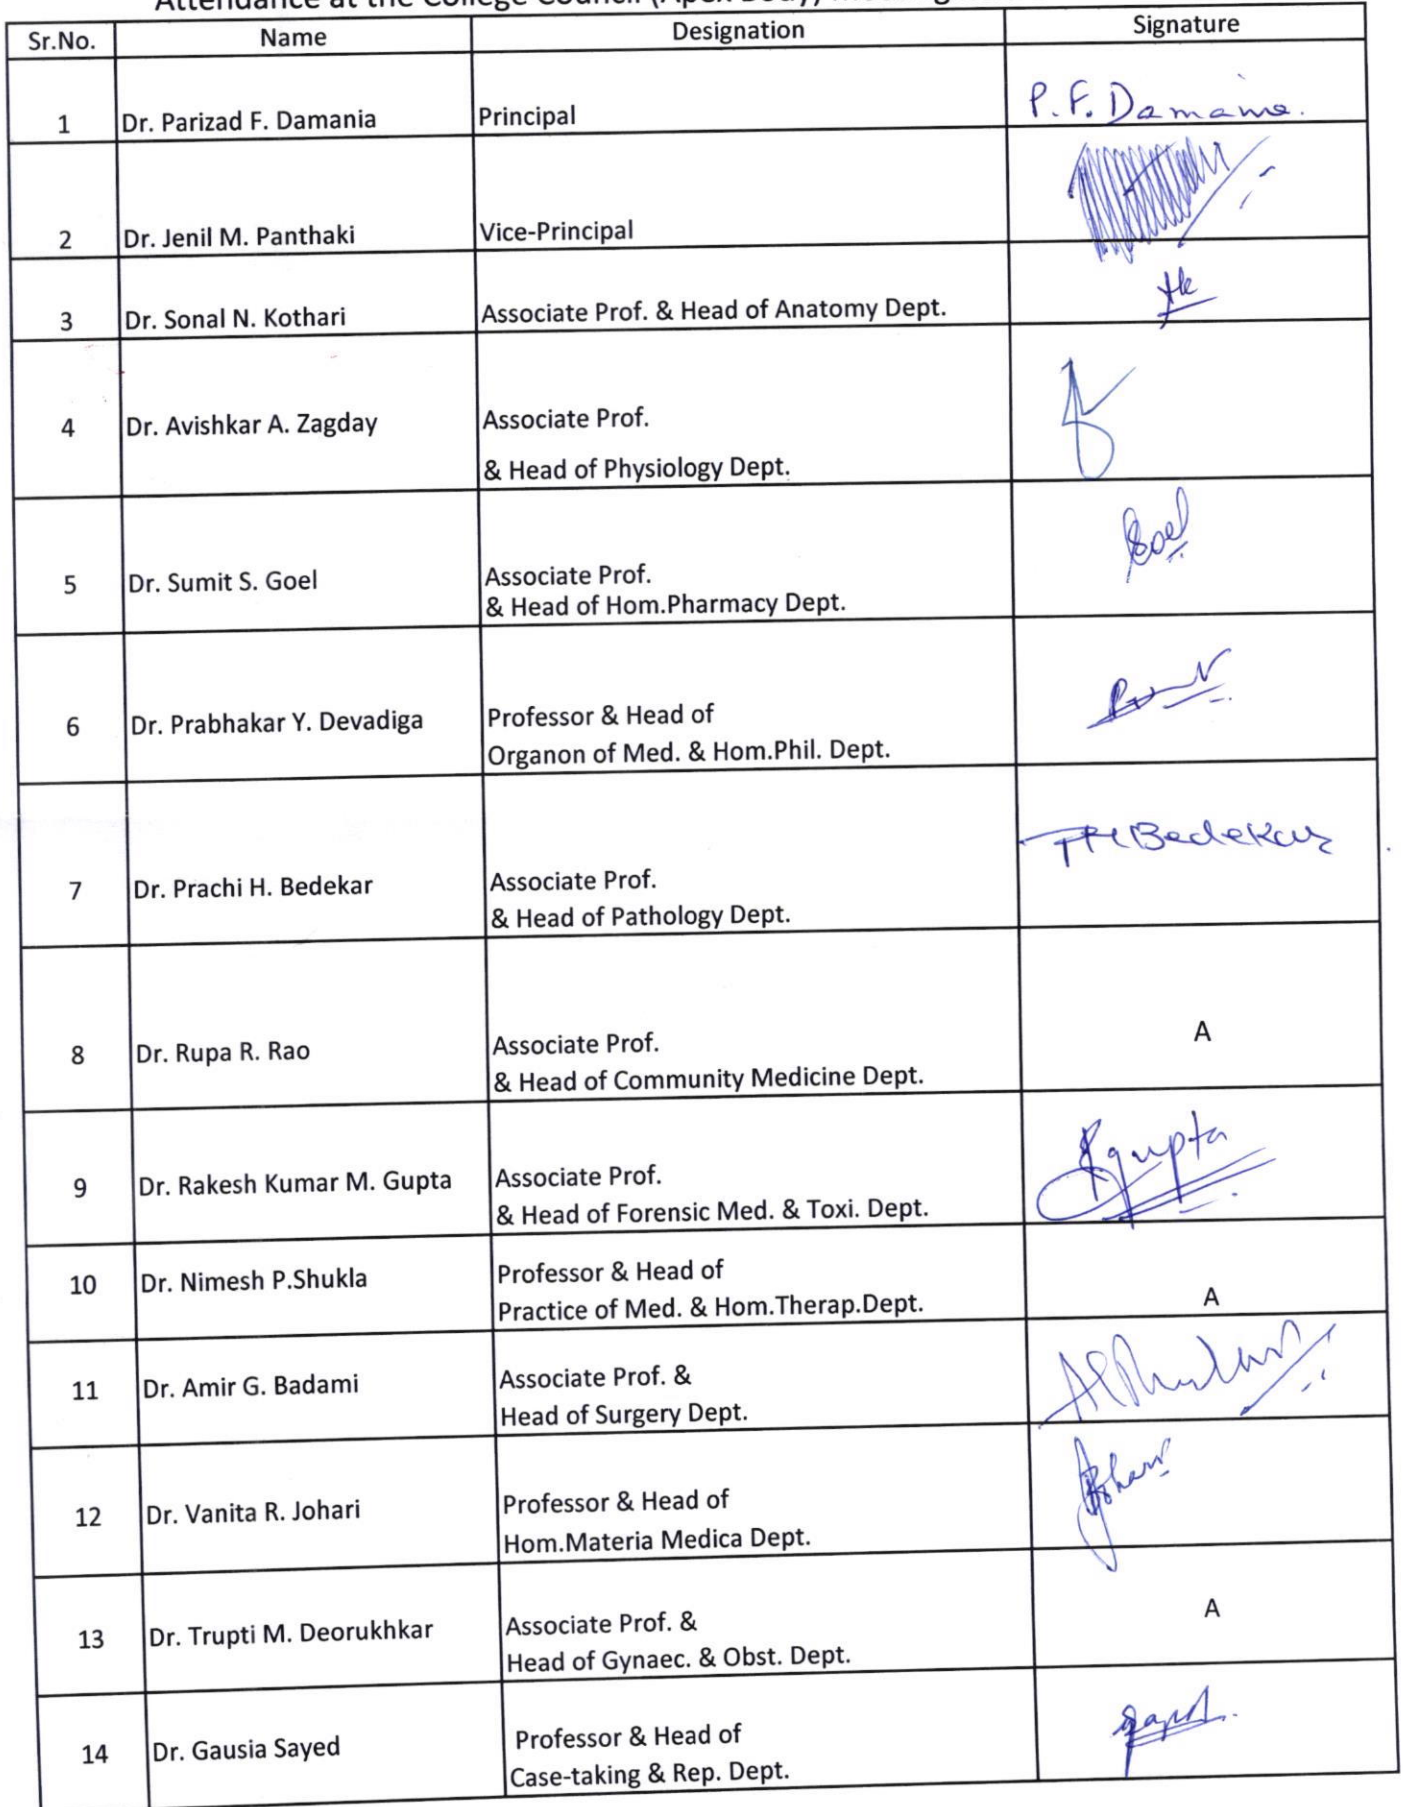 Attendance at the College Council (Apex Body)
Sr.No. Name Designation Signature
1 Dr. Parizad F. Damania Principal P.F. Damania.
2 Dr. Jenil M. Panthaki Vice-Principal
3 Dr. Sonal N. Kothari Associate Prof. & Head of Anatomy Dept.
4 Dr. Avishkar A. Zagday Associate Prof.
& Head of Physiology Dept.
5 Dr. Sumit S. Goel Associate Prof. Goel
& Head of Hom.Pharmacy Dept.
6 Dr. Prabhakar Y. Devadiga Professor & Head of
Organon of Med. & Hom.Phil. Dept.
7 Dr. Prachi H. Bedekar Associate Prof. PHBedekar
& Head of Pathology Dept.
8 Dr. Rupa R. Rao Associate Prof. A
& Head of Community Medicine Dept.
9 Dr. Rakesh Kumar M. Gupta Associate Prof. Rgupta
& Head of Forensic Med. & Toxi. Dept.
10 Dr. Nimesh P.Shukla Professor & Head of
Practice of Med. & Hom.Therap.Dept. A
11 Dr. Amir G. Badami Associate Prof. &
Head of Surgery Dept.
12 Dr. Vanita R. Johari Professor & Head of
Hom.Materia Medica Dept.
13 Dr. Trupti M. Deorukhkar Associate Prof. & A
Head of Gynaec. & Obst. Dept.
14 Dr. Gausia Sayed Professor & Head of
Case-taking & Rep. Dept.